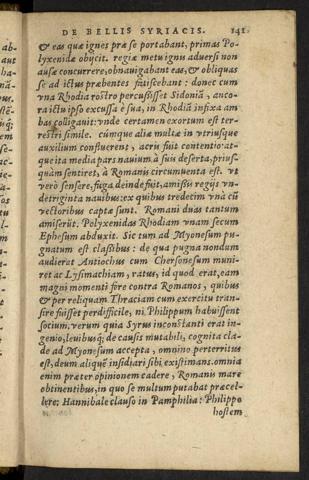 DE BELLIS SYRIACIS. 141
& eas quæ ignes præ se portabant, primas Po-
lyxenidæ obijcit. regiæ metu ignis aduersi non
ausæ concurrere, obnauigabant eas, & obliquas
se ad ictus præbentes fatiscebant: donec cum
vna Rhodia rostro percußisset Sidoniã, anco-
ra ictu ipso excussa è sua, in Rhodiã infixa am-
bas colligauit: vnde certamen exortum est ter-
restri simile. cúmque aliæ multæ in vtriusque
auxilium confluerent, acris fuit contentio: at-
que ita media pars nauium à suis deserta, prius-
quàm sentiret, à Romanis circumuenta est. vt
verò sensere, fuga deinde fuit, amißis regijs vn-
detriginta nauibus: ex quibus tredetim vnà cũ
vectoribus captæ sunt. Romani duas tantum
amiserũt. Polyxenidas Rhodiam vnam secum
Ephesum abduxit. Sic tum ad Myonesum pu-
gnatum est claßibus: de qua pugna nondum
audierat Antiochus cum Chersonesum muni-
ret ac Lysimachiam, ratus, id quod erat, eam
magni momenti fore contra Romanos, quibus
& per reliquam Thraciam cum exercitu tran-
sire fuisset perdifficile, ni Philippum habuissent
socium. verum quia Syrus inconstanti erat in-
genio, leuibusq; de causis mutabili, cognita cla-
de ad Myonesum accepta, omnino perterritus
est, deum aliquẽ insidiari sibi existimans. omnia
enim præter opinionem cadere, Romanis mare
obtinentibus, in quo se multum putabat præcel-
lere: Hannibale clauso in Pamphilia: Philippo
hostem